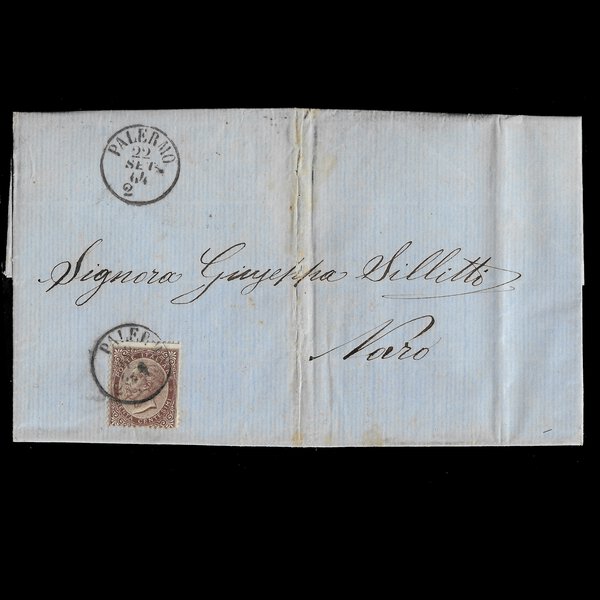 PALERMO
22
SET
64
2
Signora Giuseppa Sillitti
Naro
PALER
CENT